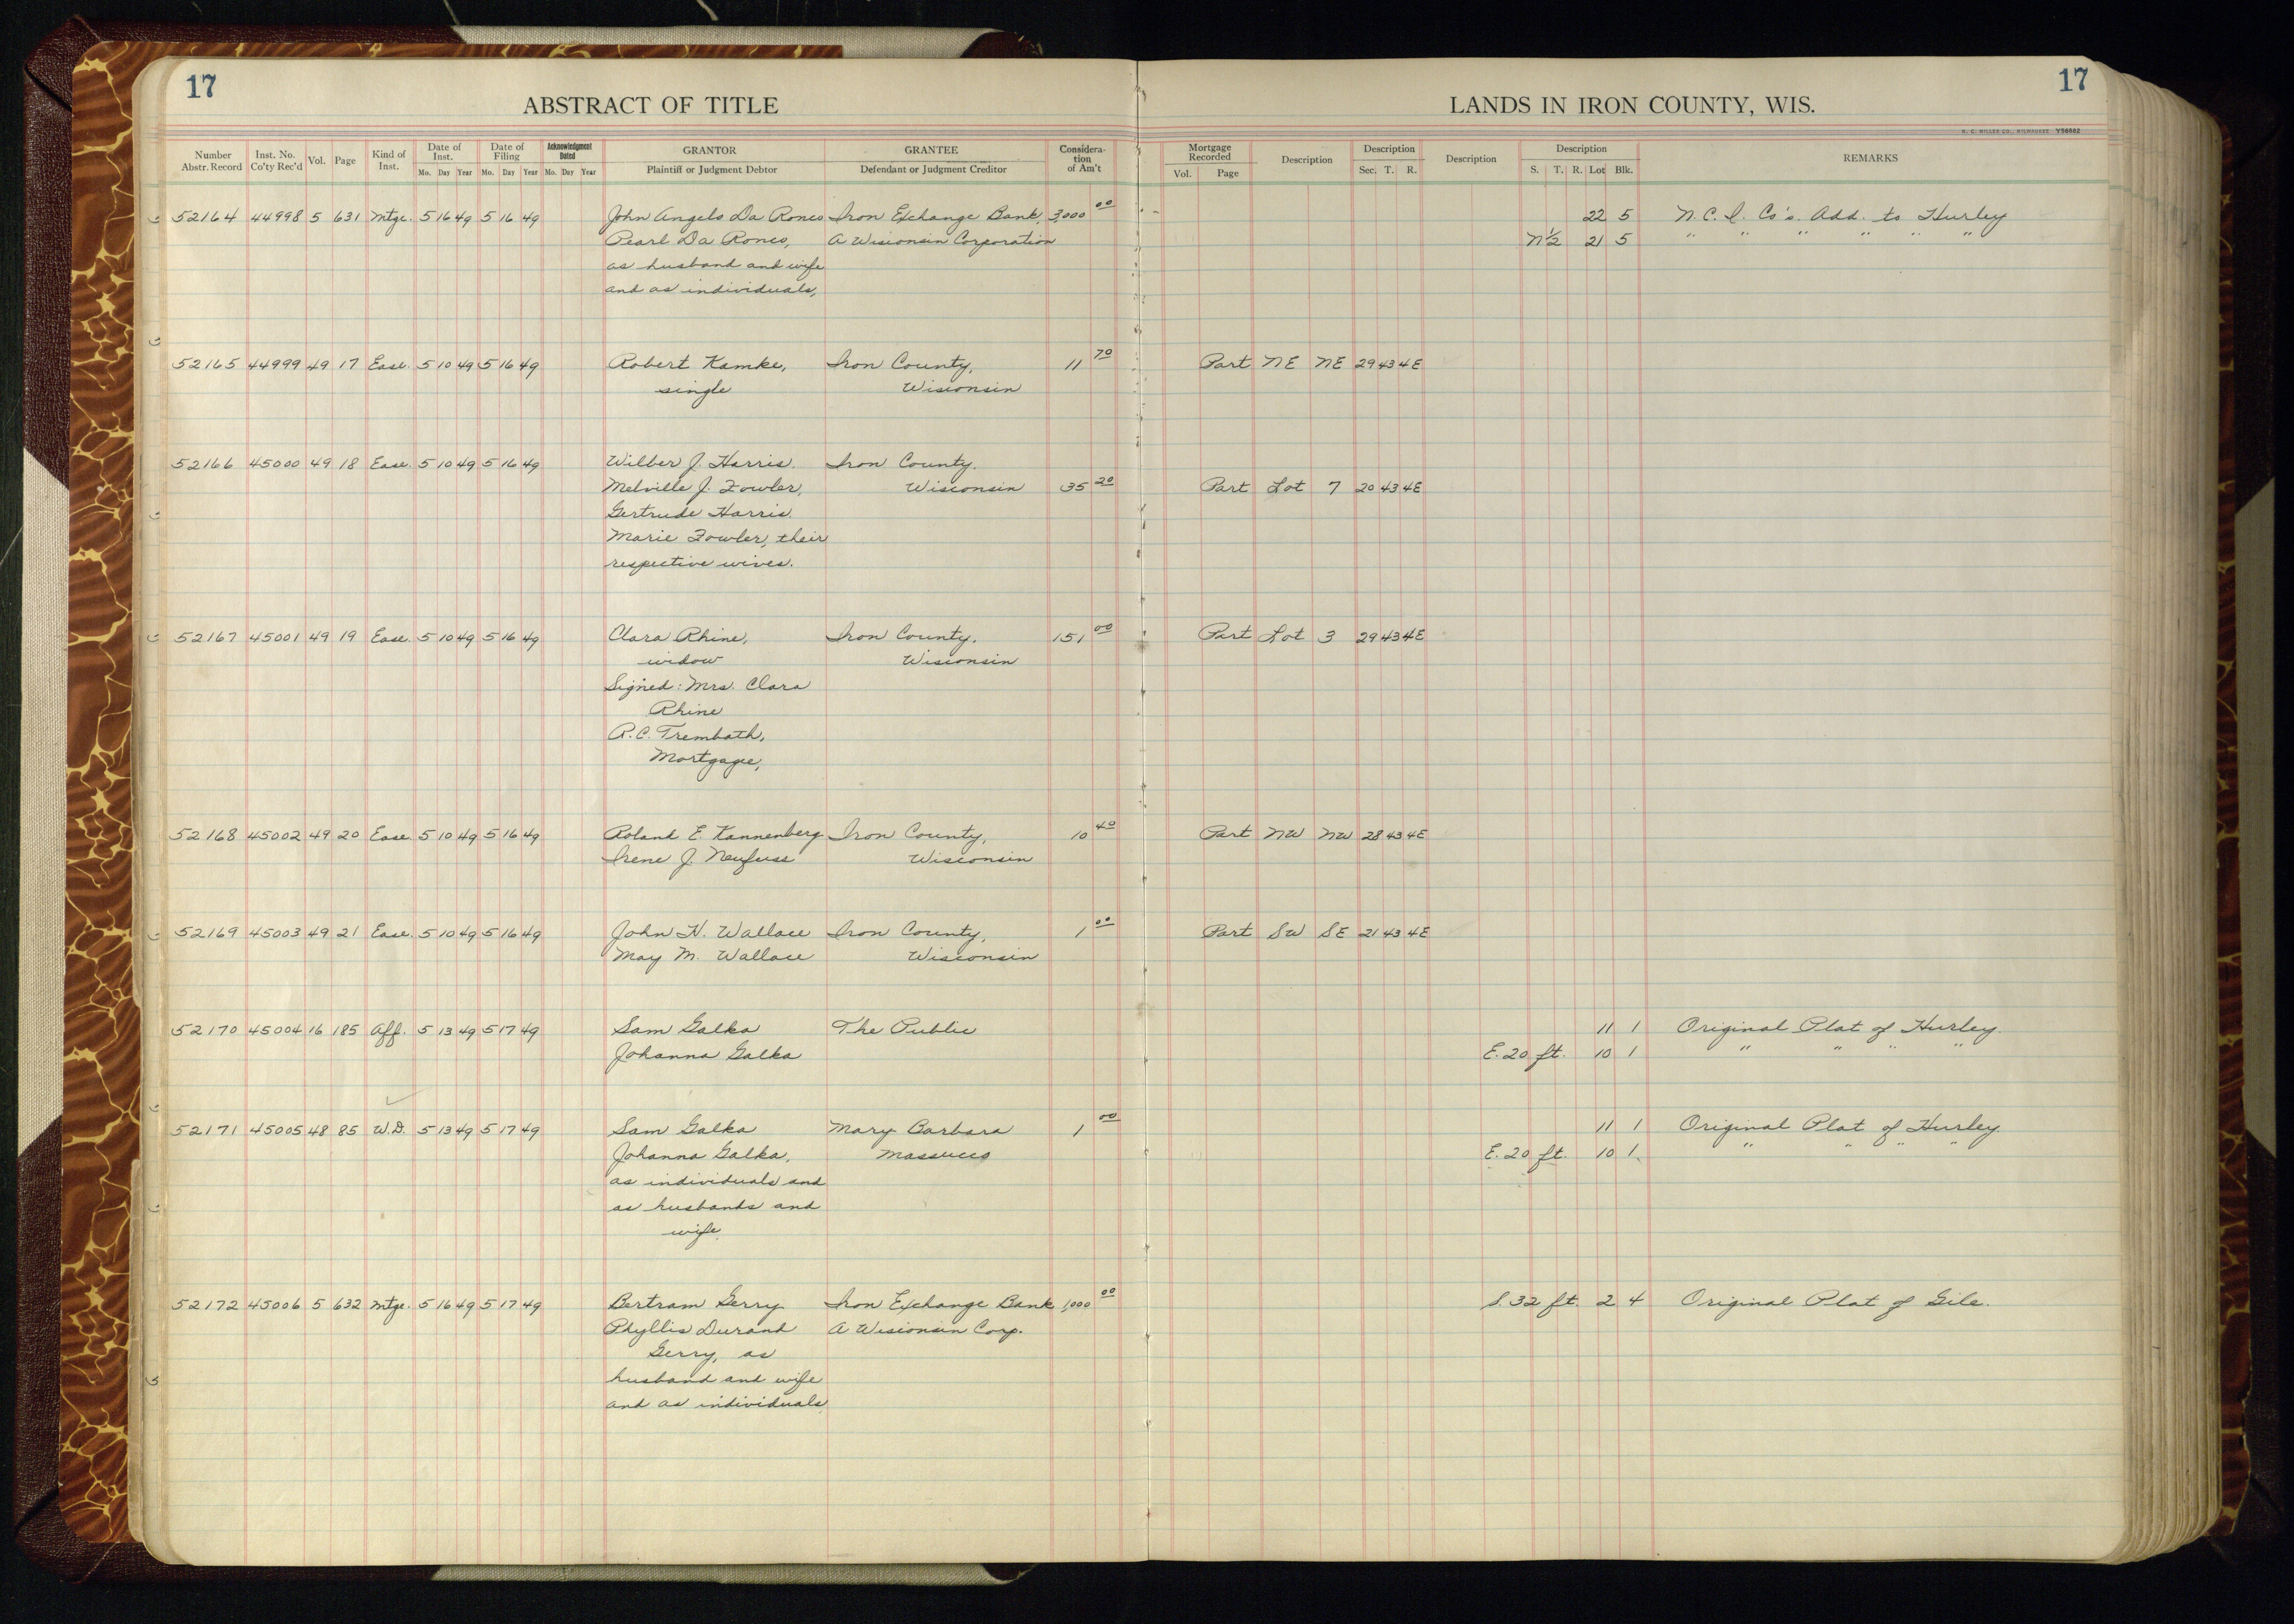 17
17
ABSTRACT OF TITLE
LANDS IN IRON COUNTY, WIS.
H. C. MILLER CO., MILWAUKEE Y56682
Number Abstr. Record | Inst. No. Co'ty Rec'd | Vol. | Page | Kind of Inst. | Date of Inst. Mo. Day Year | Date of Filing Mo. Day Year | Acknowledgment Dated Mo. Day Year | GRANTOR Plaintiff or Judgment Debtor | GRANTEE Defendant or Judgment Creditor | Considera-tion of Am't | Mortgage Recorded Vol. Page | Description | Description Sec. T. R. | Description | Description S. T. R. Lot Blk. | REMARKS
52164 44998 5 631 Mtge. 5 16 49 5 16 49 John Angelo Da Ronco Iron Exchange Bank, 3,000 00 22 5 N. C. I. Co's. Add. to Hurley
Pearl Da Ronco, A Wisconsin Corporation N½ 21 5 " " " " " "
as husband and wife
and as individuals,
52165 44999 49 17 Ease. 5 10 49 5 16 49 Robert Kamke, Iron County, 11 70 Part NE NE 29 43 4E
single Wisconsin
52166 45000 49 18 Ease. 5 10 49 5 16 49 Wilber J. Harris. Iron County.
Melville J. Fowler, Wisconsin 35 20 Part Lot 7 20 43 4E
Gertrude Harris.
Marie Fowler, their
respective wives.
52167 45001 49 19 Ease. 5 10 49 5 16 49 Clara Rhine, Iron County. 151 00 Part Lot 3 29 43 4E
widow Wisconsin
Signed: Mrs. Clara
Rhine
R. C. Trembath,
Mortgagee,
52168 45002 49 20 Ease 5 10 49 5 16 49 Roland E. Kannenberg Iron County, 10 40 Part NW NW 28 43 4E
Irene J. Neufuss Wisconsin
52169 45003 49 21 Ease. 5 10 49 5 16 49 John H. Wallace Iron County, 1 00 Part SW SE 21 43 4E
May M. Wallace Wisconsin
52170 45004 16 185 Aff. 5 13 49 5 17 49 Sam Galka The Public 11 1 Original Plat of Hurley.
Johanna Galka E. 20 ft. 10 1 " " " "
52171 45005 48 85 W.D. 5 13 49 5 17 49 Sam Galka Mary Barbara 1 00 11 1 Original Plat of Hurley.
Johanna Galka, Massucco E. 20 ft. 10 1 " " " "
as individuals and
as husbands and
wife.
52172 45006 5 632 Mtge. 5 16 49 5 17 49 Bertram Gerry Iron Exchange Bank 1,000 00 S. 32 ft. 2 4 Original Plat of Gile.
Phyllis Durand A Wisconsin Corp.
Gerry, as
husband and wife
and as individuals